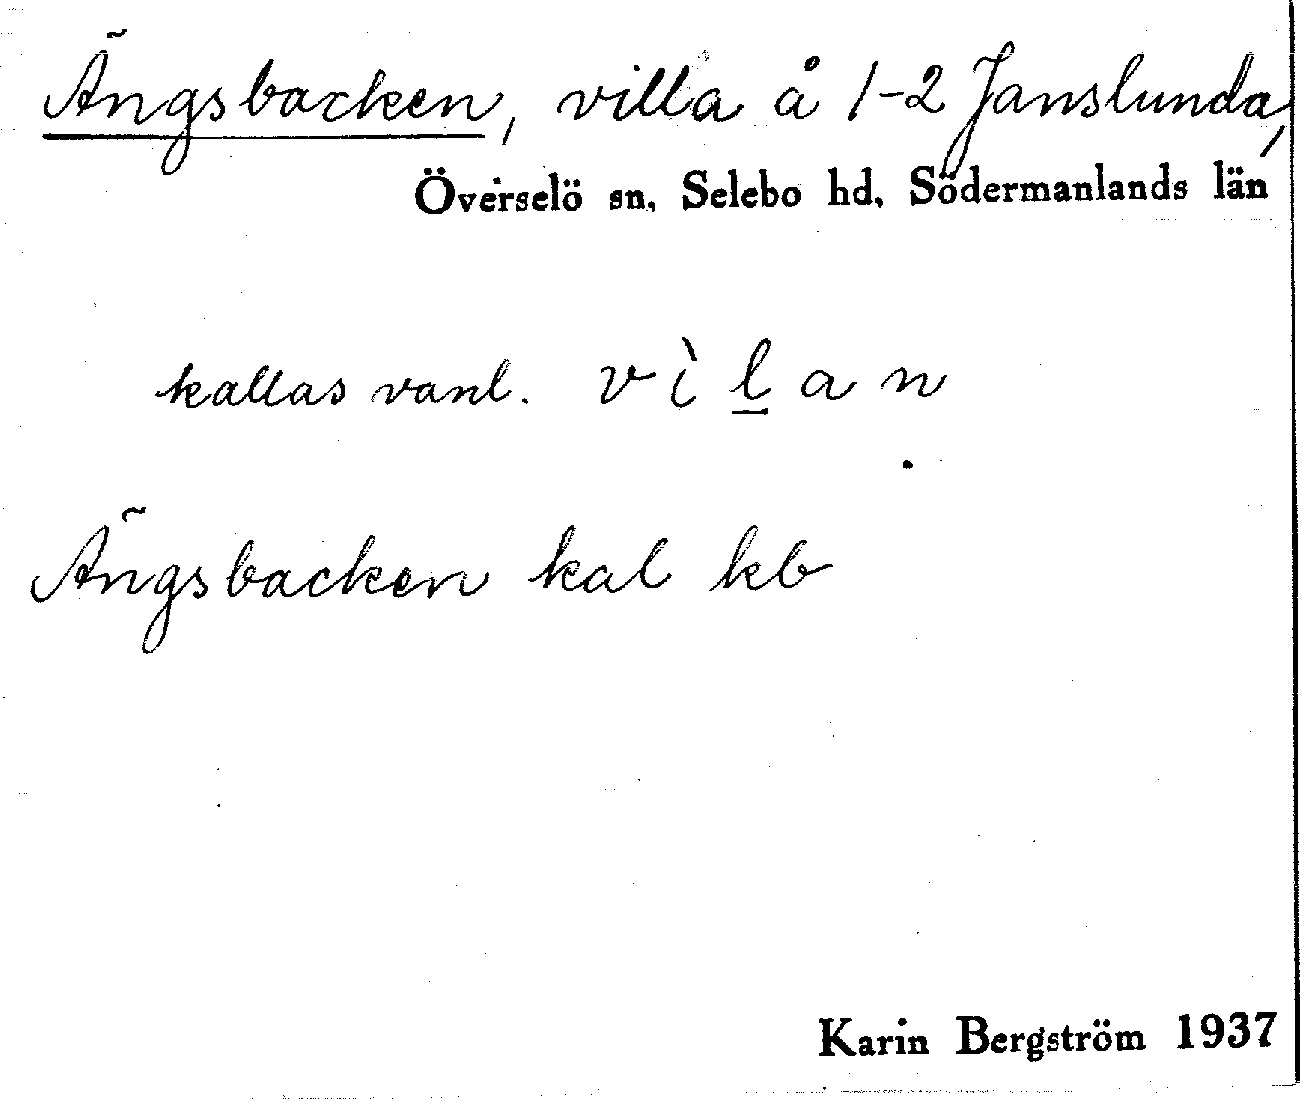 Ängsbacken, villa å 1-2 Janslunda,
Överselö sn, Selebo hd, Södermanlands län
kallas vanl. vìl̲an
Ängsbacken kal kb
Karin Bergström 1937